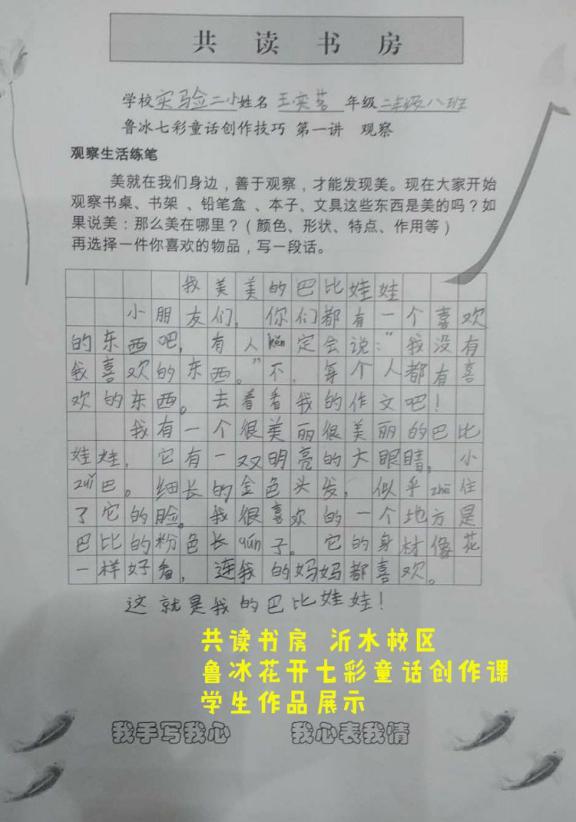 共读书房
学校实验二小姓名王奕 年级二年级八班
鲁冰七彩童话创作技巧 第一讲 观察
观察生活练笔
美就在我们身边，善于观察，才能发现美。现在大家开始
观察书桌、书架 、铅笔盒 、本子、文具这些东西是美的吗？如
果说美：那么美在哪里？（ 颜色、形状、特点、作用等）
再选择一件你喜欢的物品，写一段话。
我美美的巴比娃娃
小朋友们，你们都有一个喜欢
的东西吧，有人kěn定会说：“我没有
我喜欢的东西。”不，每个人都有喜
欢的东西。去看看我的作文吧！
我有一个很美丽很美丽的巴比
娃娃，它有一双明亮的大眼睛，小
zuǐ巴。细长的金色头发，似乎zhē住
了它的脸。我很喜欢的一个地方是
巴比的粉色长qún子。它的身材像花
一样好看，连我的妈妈都喜欢。
这就是我的巴比娃娃！
共读书房 沂水校区
鲁冰花开七彩童话创作课
学生作品展示
我手写我心 我心表我情